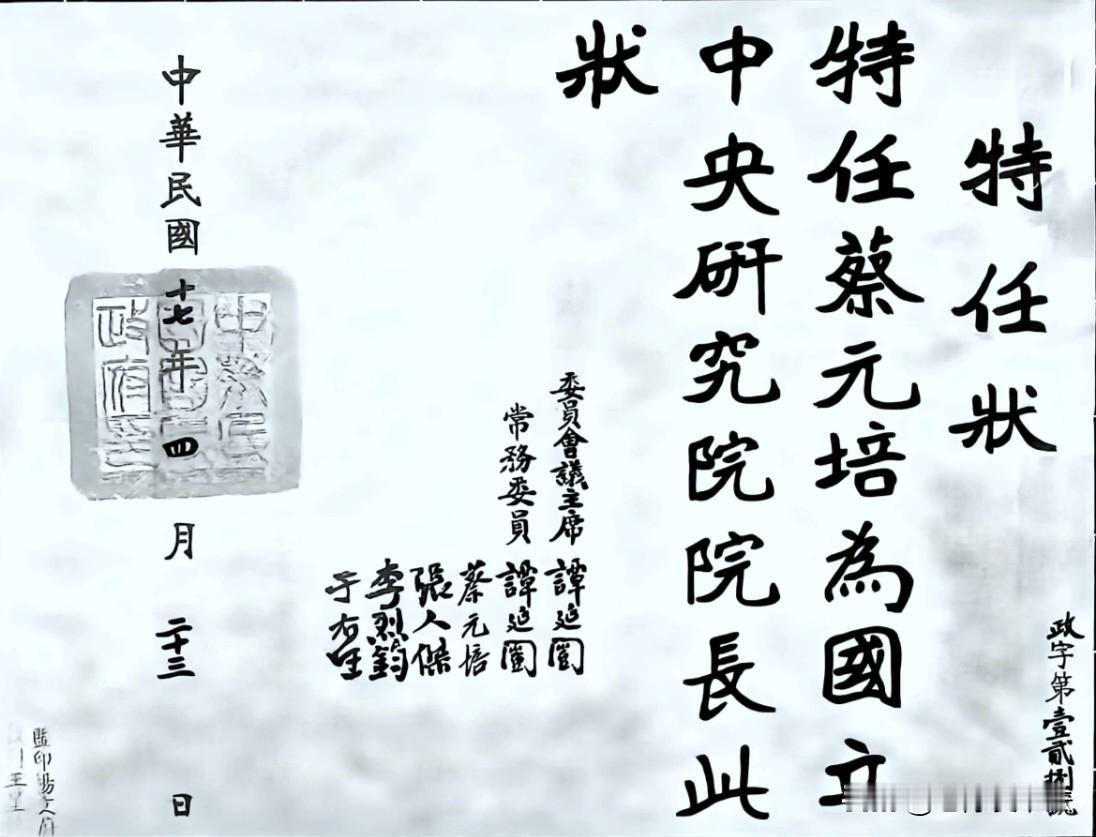 特任狀
政字第壹貳捌號
特任蔡元培為國立
中央研究院院長此
狀
委員會議主席 譚延闓
常務委員 譚延闓
蔡元培
張人傑
李烈鈞
于右任
中華民國十七年四月二十三日
監印